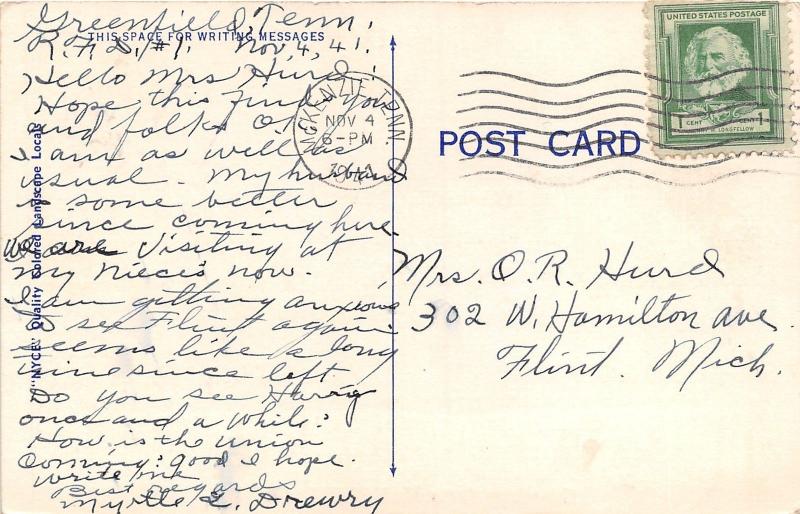 Greenfield, Tenn.
THIS SPACE FOR WRITING MESSAGES
R.F.D. #1. Nov, 4, 41.
Hello Mrs Hurd:
Hope this find you
and folks O.K.
I am as well as
usual. My husband
is some better
since coming here.
We are visiting at
my Nieces now.
I am getting anxious
to see Flint again
seems like a long
time since left.
Do you see Harry
once and a while?
How is the union
coming? good I hope.
write me
Best regards
Myrtle L. Drewry
"NYCE" Quality Colored Landscape Locals
McKENZIE, TENN.
NOV 4
6-PM
1941
UNITED STATES POSTAGE
1 CENT CENT 1
HENRY W. LONGFELLOW
POST CARD
Mrs. O.R. Hurd
302 W. Hamilton ave.
Flint. Mich.